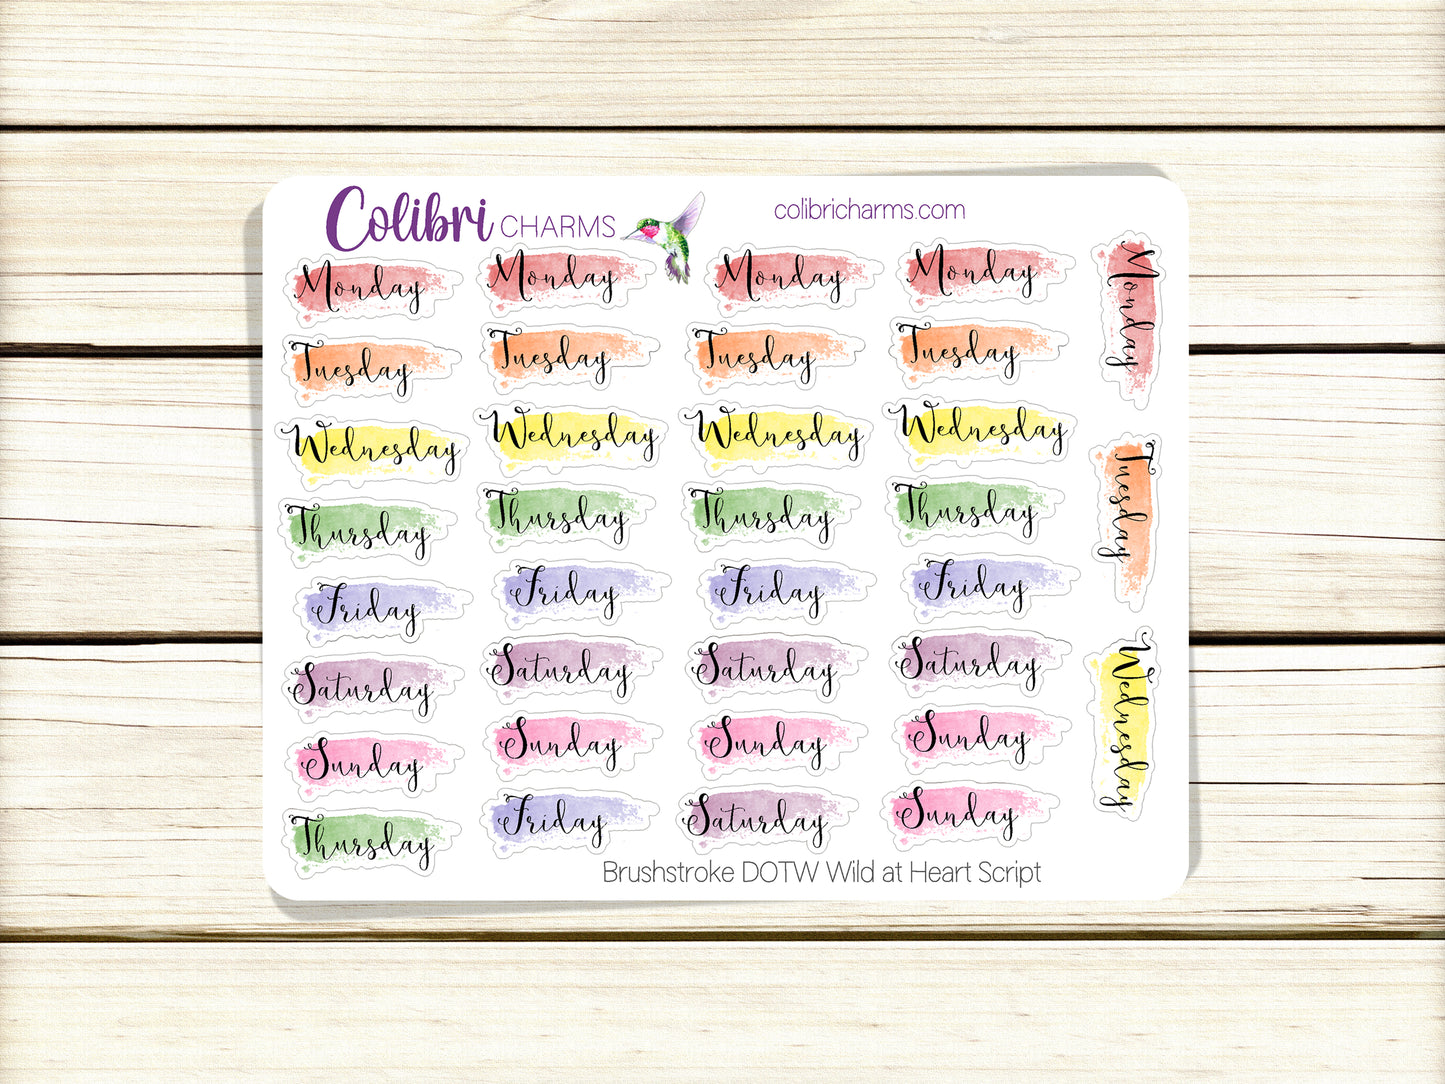 Colibri CHARMS
colibricharms.com
Monday Monday Monday Monday
Tuesday Tuesday Tuesday Tuesday
Wednesday Wednesday Wednesday Wednesday
Thursday Thursday Thursday Thursday
Friday Friday Friday Friday
Saturday Saturday Saturday Saturday
Sunday Sunday Sunday Sunday
Thursday Friday Saturday Sunday
Monday
Tuesday
Wednesday
Brushstroke DOTW Wild at Heart Script